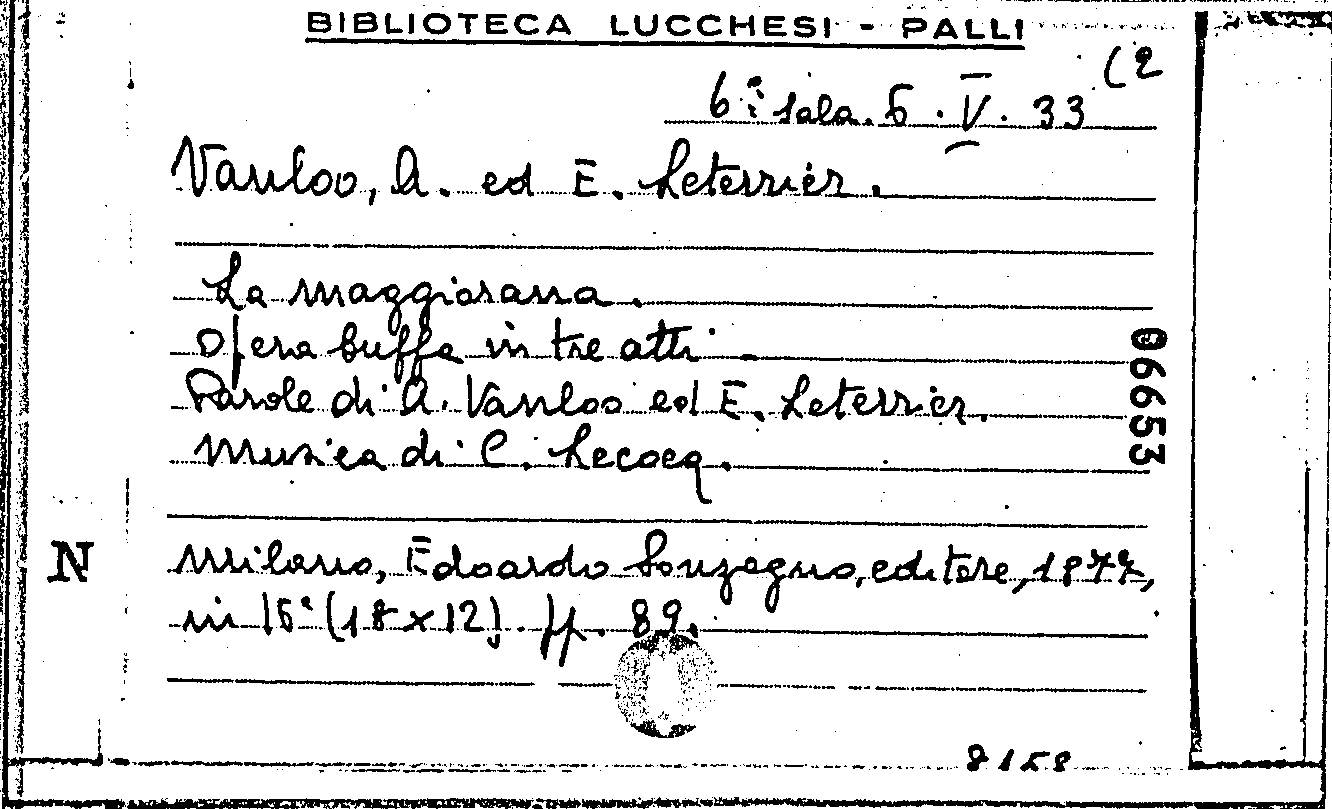 BIBLIOTECA LUCCHESI - PALLI
6ª Sala. 6. V. 33 (2
Vanloo, A. ed E. Leterrier.
La maggiorana.
Opera buffa in tre atti.
Parole di A. Vanloo ed E. Leterrier.
Musica di C. Lecocq.
06653
N
Milano, Edoardo Sonzogno, editore, 1877,
in 16° (18 x 12). pp. 89.
8158